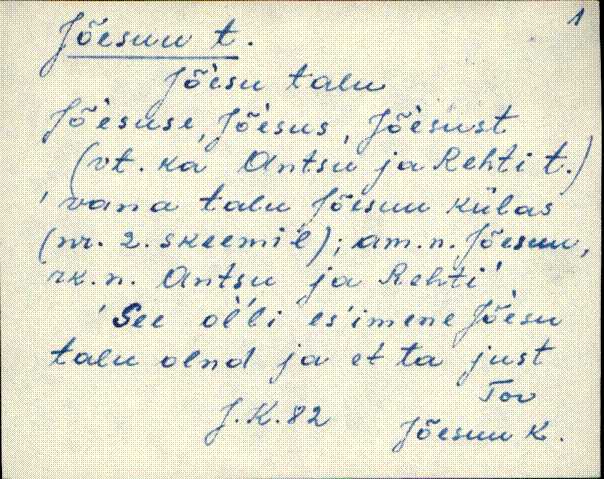 1
Jõesuu t.
Jõèsu talu
Jõèsuse, Jõèsus, Jõèsust
(vt. ka Antsu ja Rehti t.)
'vana talu Jõesuu külas
(nr. 2. skeemil); am.n. Jõesuu,
rk.n. Antsu ja Rehti'
'See ol'li es'imene Jõesu
talu olnd ja et ta just
Tor
J.K.82
Jõesuu K.